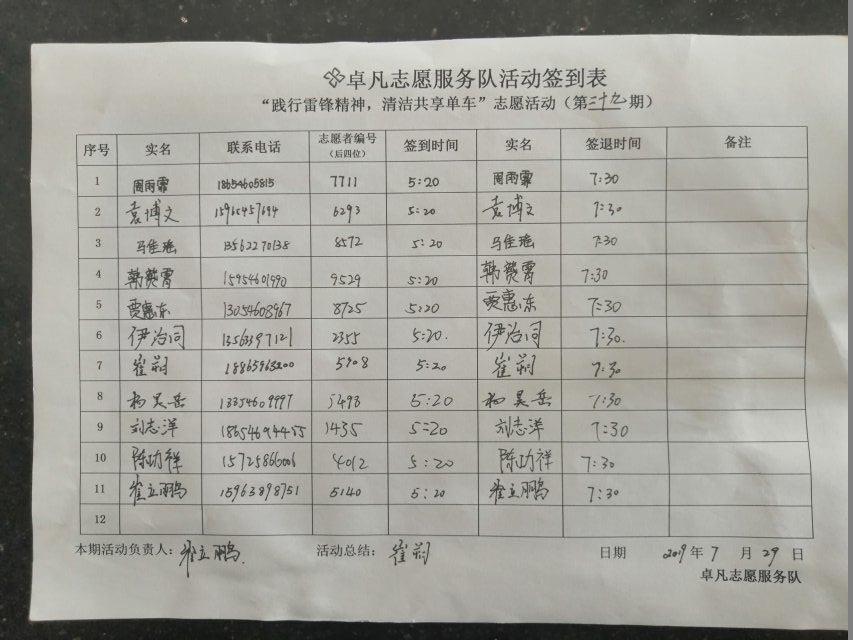 卓凡志愿服务队活动签到表
“践行雷锋精神，清洁共享单车”志愿活动（第三十九期）
序号 实名 联系电话 志愿者编号（后四位） 签到时间 实名 签退时间 备注
1 周雨霏 18654605815 7711 5:20 周雨霏 7:30
2 袁博文 15965457694 6293 5:20 袁博文 7:30
3 马佳瑶 13562270138 8572 5:20 马佳瑶 7:30
4 韩赟霄 15954601990 9529 5:20 韩赟霄 7:30
5 贾惠东 13054608967 8725 5:20 贾惠东 7:30
6 伊治同 13563397121 2355 5:20. 伊治同 7:30.
7 崔 18865963200 5908 5:20 崔 7:30
8 杨昊岳 13354609997 5493 5:20 杨昊岳 7:30
9 刘志洋 18654694455 1435 5:20 刘志洋 7:30
10 陈功祥 15725866006 4012 5:20 陈功祥 7:30
11 崔立鹏 15963898751 5140 5:20 崔立鹏 7:30
12
本期活动负责人：崔立鹏 活动总结：崔 日期 2019年7月29日
卓凡志愿服务队